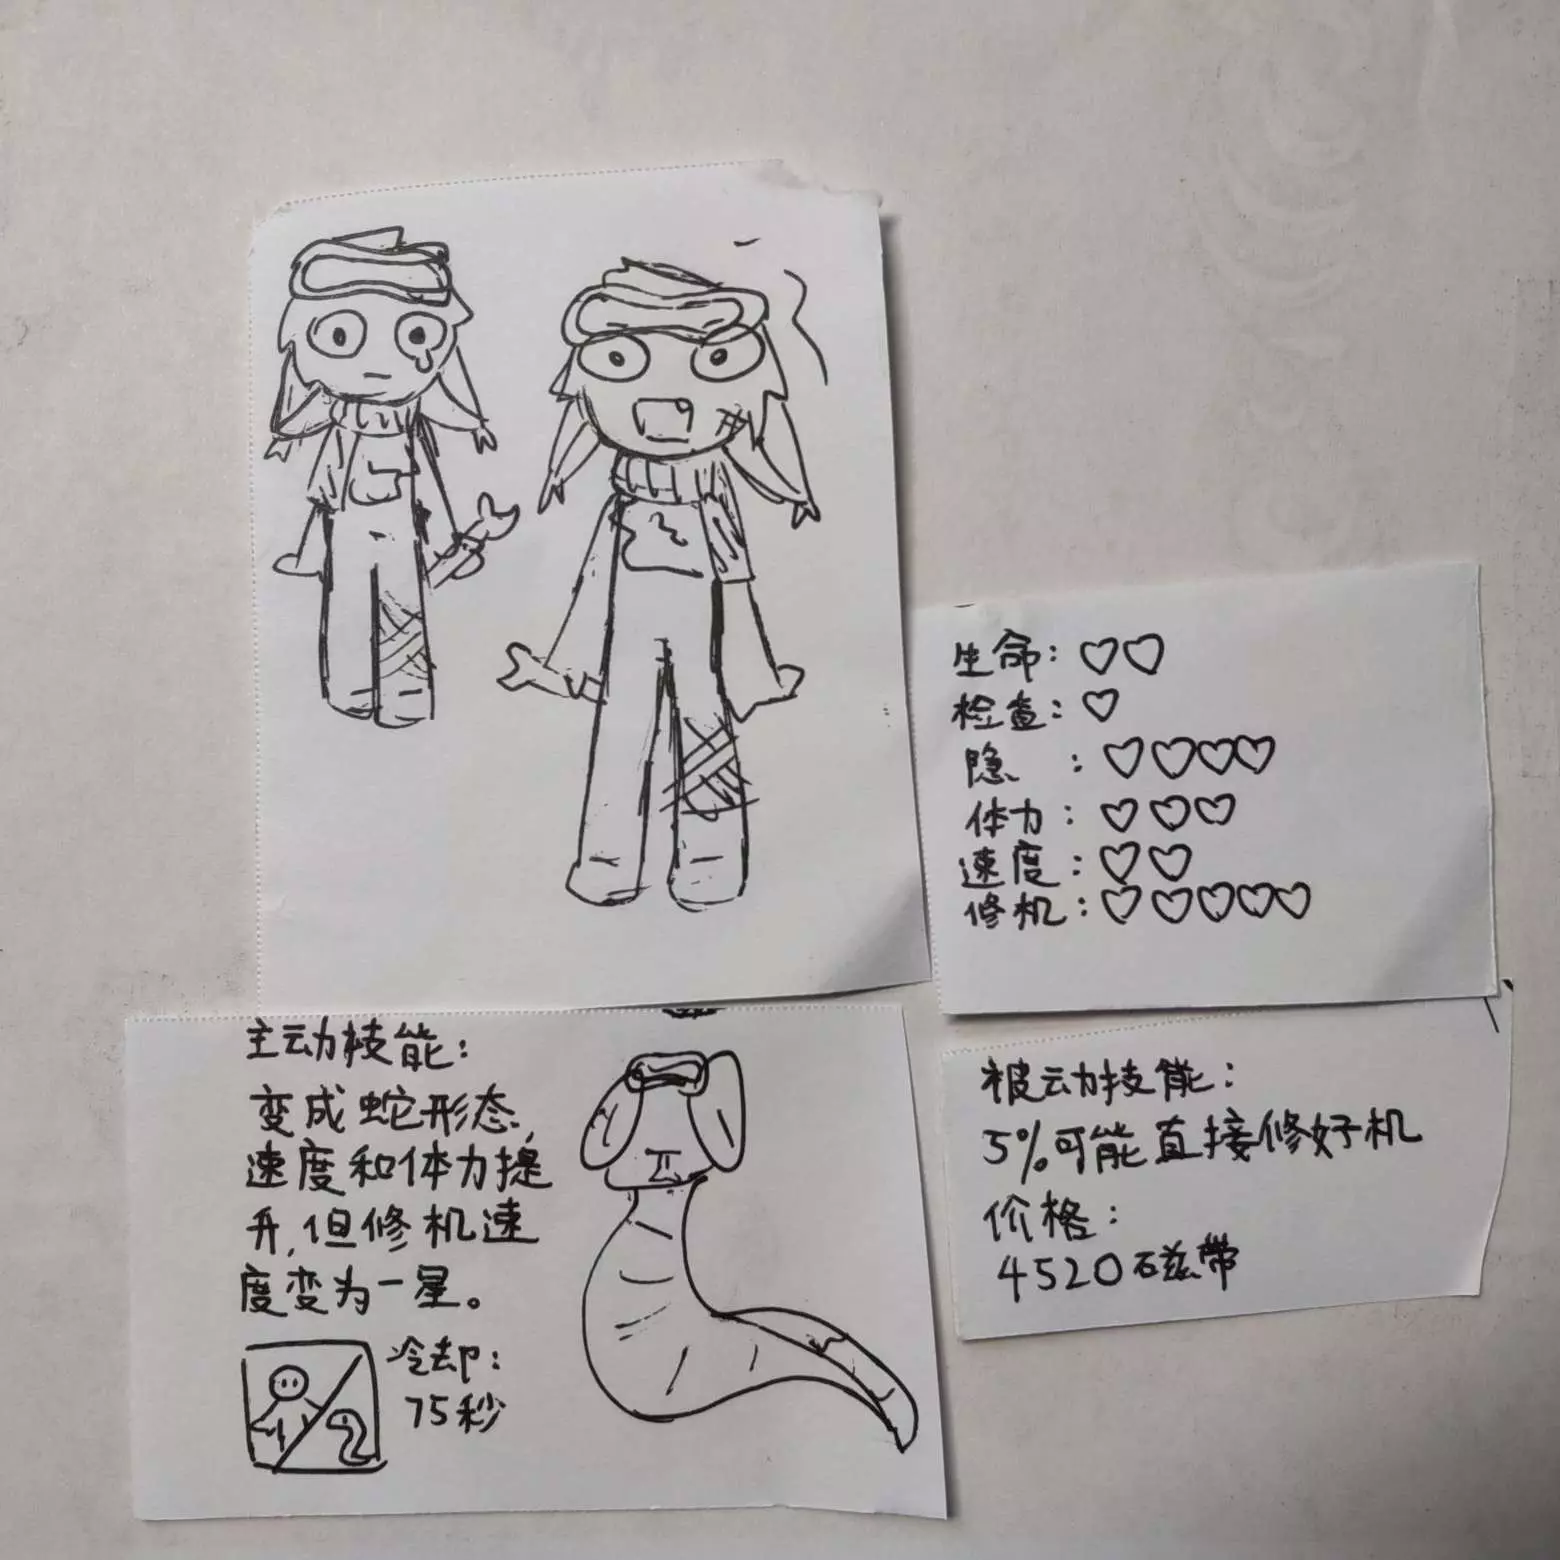 生命：♡♡
检查：♡
隐　：♡♡♡♡
体力：♡♡♡
速度：♡♡
修机：♡♡♡♡♡
主动技能：
变成蛇形态，
速度和体力提
升，但修机速
度变为一星。
冷却：
75秒
被动技能：
5%可能直接修好机
价格：
4520磁带